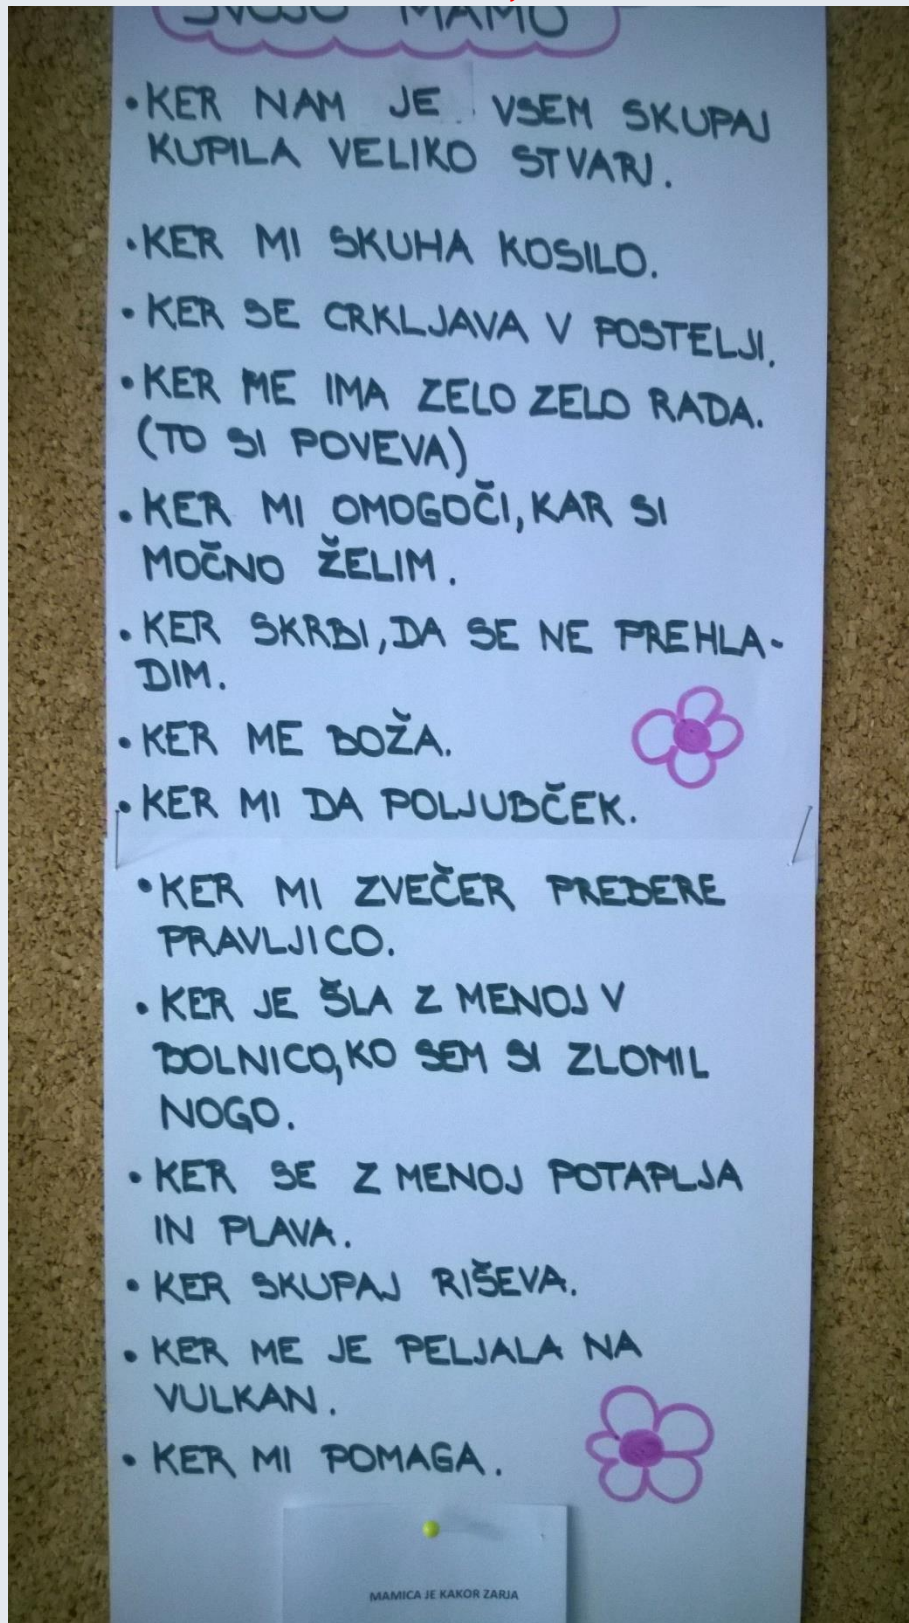 SVOJO MAMO
• KER NAM JE VSEM SKUPAJ
KUPILA VELIKO STVARI.
• KER MI SKUHA KOSILO.
• KER SE CRKLJAVA V POSTELJI.
• KER ME IMA ZELO ZELO RADA.
(TO SI POVEVA)
• KER MI OMOGOČI, KAR SI
MOČNO ŽELIM.
• KER SKRBI, DA SE NE PREHLA-
DIM.
• KER ME BOŽA.
• KER MI DA POLJUBČEK.
• KER MI ZVEČER PREBERE
PRAVLJICO.
• KER JE ŠLA Z MENOJ V
BOLNICO, KO SEM SI ZLOMIL
NOGO.
• KER SE Z MENOJ POTAPLJA
IN PLAVA.
• KER SKUPAJ RIŠEVA.
• KER ME JE PELJALA NA
VULKAN.
• KER MI POMAGA.
MAMICA JE KAKOR ZARJA